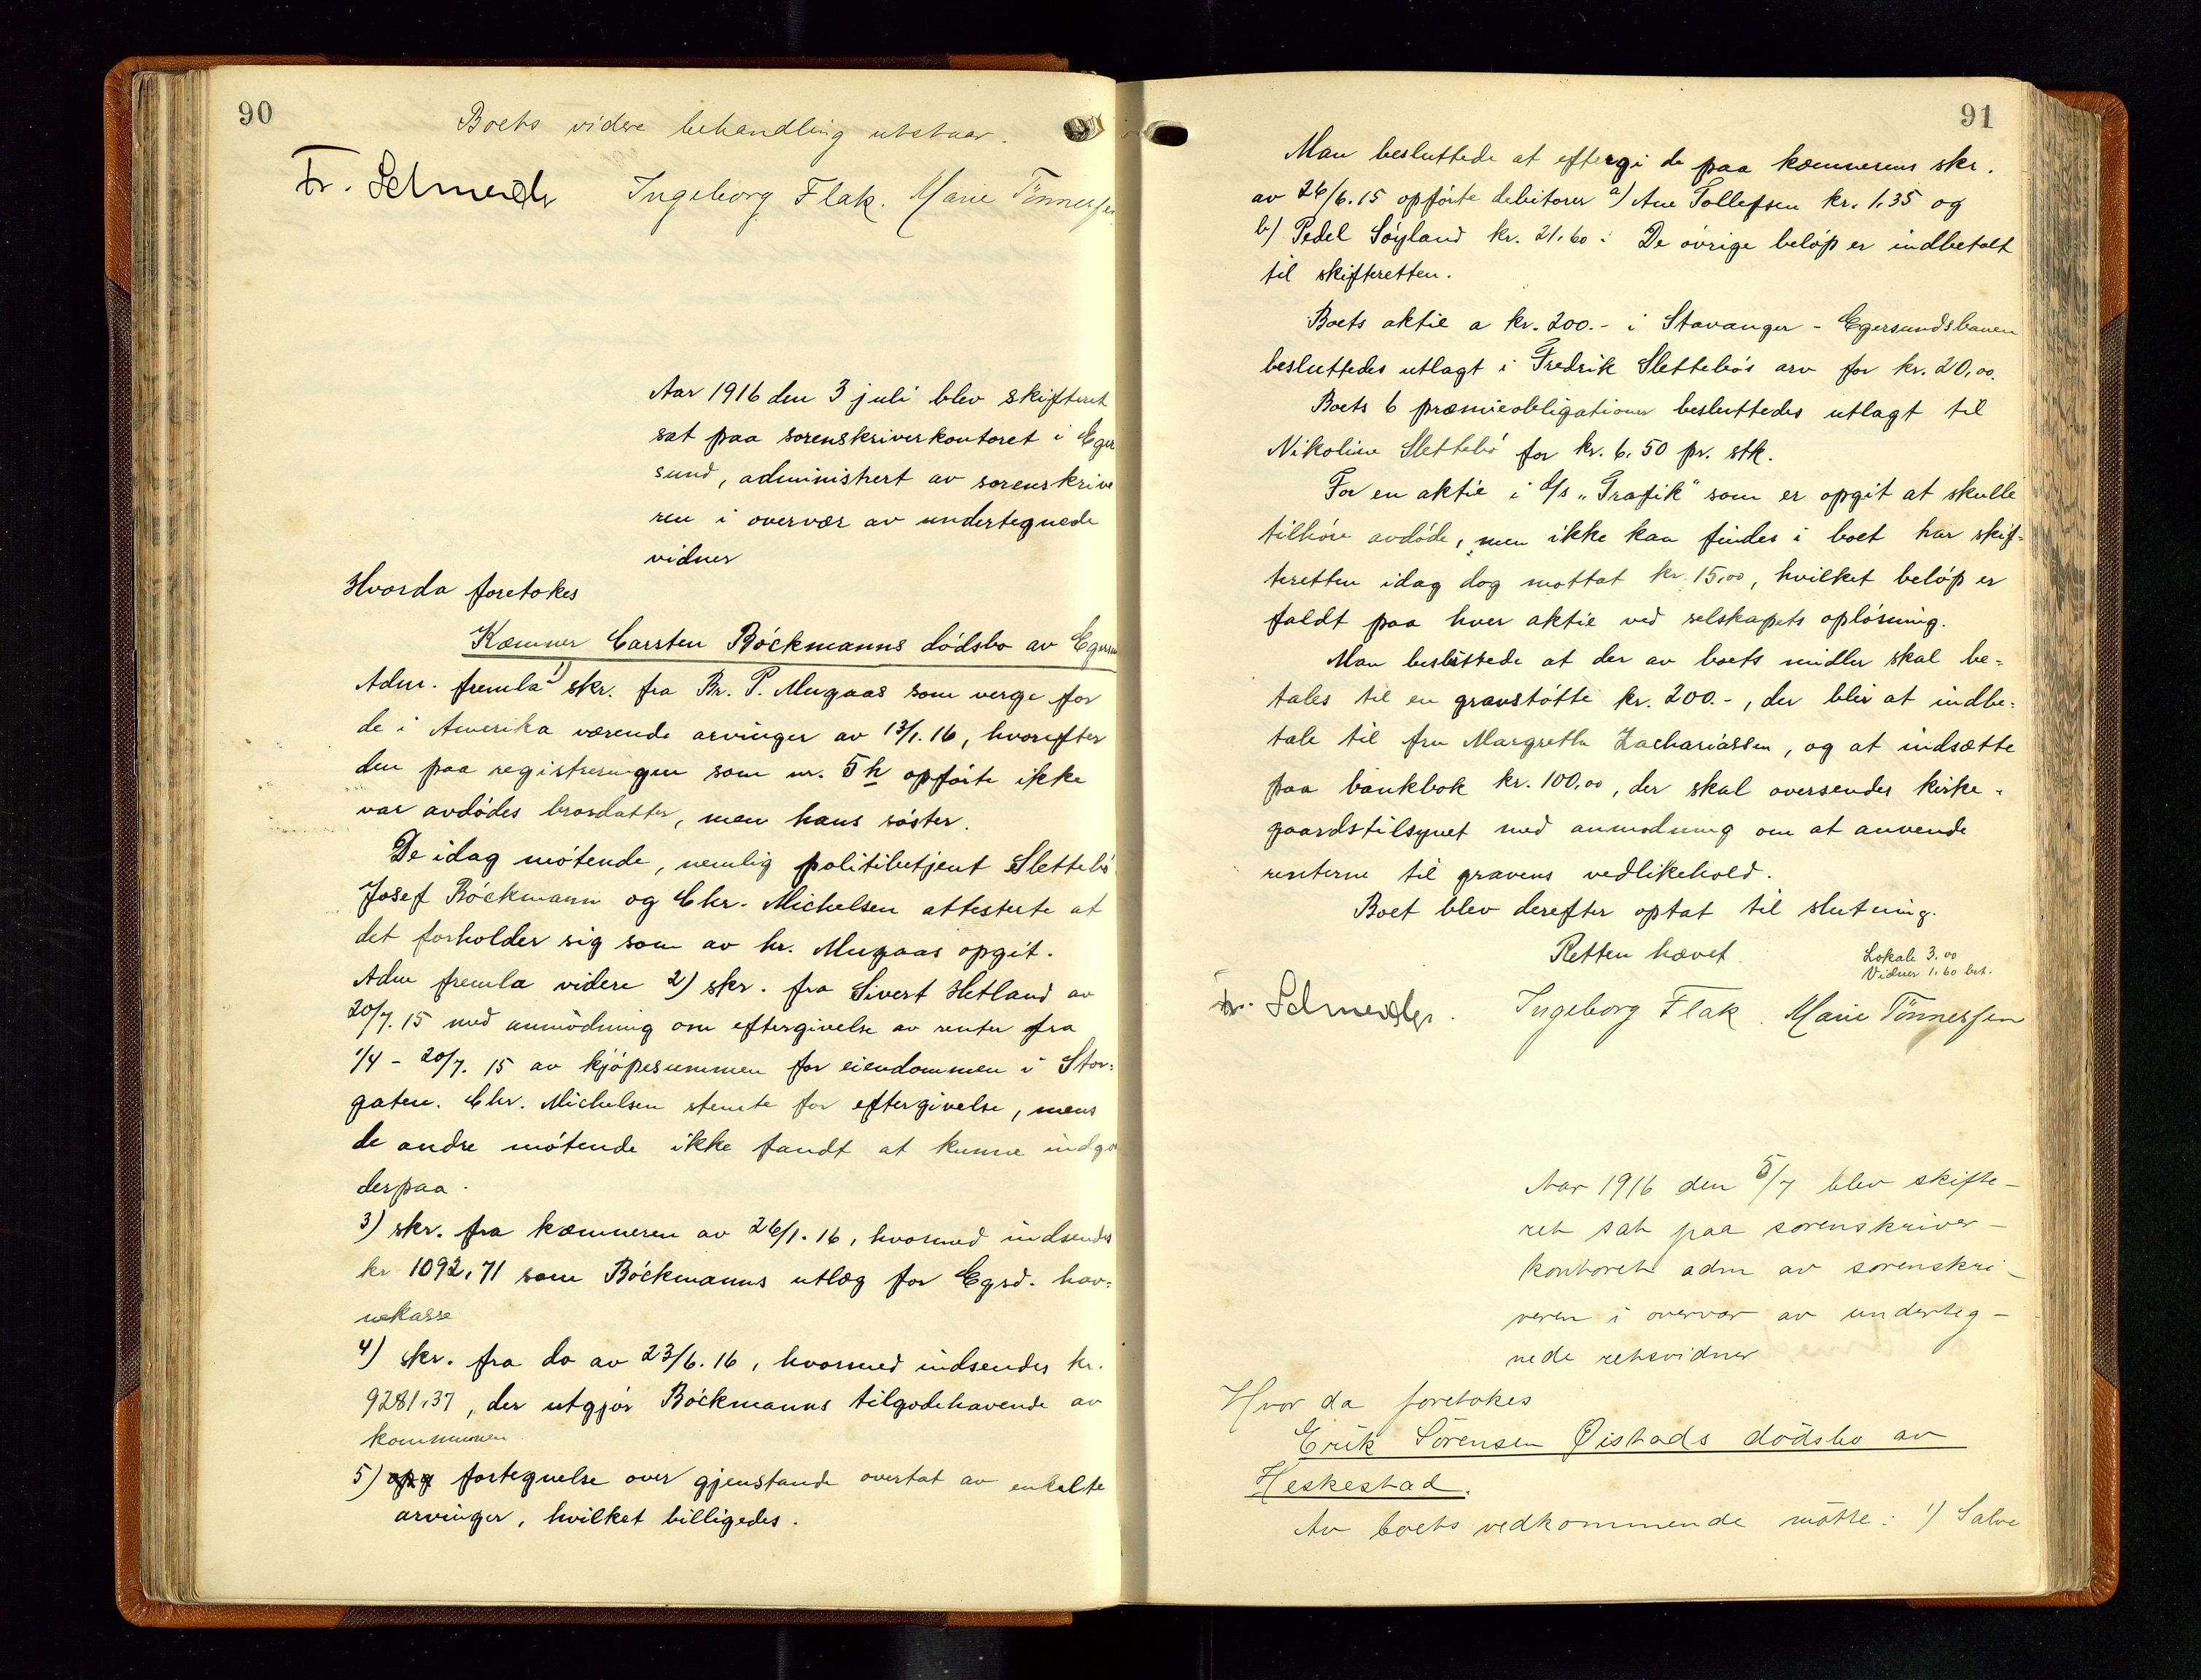 90
Boets videre behandling utstaar.
Fr. Schneider Ingeborg Flak. Marie Tönnessen
Aar 1916 den 3 juli blev skifteret
sat paa sorenskriverkontoret i Eger
sund, administrert av sorenskrive
ren i overvær av undertegnede
vidner
Hvorda foretokes
Kæmner Carsten Böckmanns dödsbo av Egersu
Adm. fremla 1) skr. fra Br. P. Mugaas som verge for
de i Amerika værende arvinger av 13/1. 16, hvorefter
den paa registreringen som nr. 5 h opförte ikke
var avdödes brordatter, men hans söster.
De idag mötende, nemlig politibetjent Slettebö
Josef Böckmann og Chr. Michelsen attesterte at
det forholder sig som av hr. Mugaas opgit.
Adm fremla videre 2) skr. fra Sivert Hetland av
20/7. 15 med anmodning om eftergivelse av renter fra
1/4 - 20/7. 15 av kjöpesummen for eiendommen i Stor=
gaten. Chr. Michelsen stemte for eftergivelse, mens
de andre mötende ikke fandt at kunne indgaa
derpaa.
3) skr. fra kæmneren av 26/1. 16, hvormed indsendes
kr 1092,71 som Böckmanns utlæg for Egsd. hav=
nekasse
4) skr. fra do av 23/6. 16, hvormed indsendes kr.
9281,37, der utgjör Böckmanns tilgodehavende av
kommunen
5) opg fortegnelse over gjenstande overtat av enkelte
arvinger, hvilket billigedes.
91
Man besluttede at eftergi de paa kæmnerens skr.
av 26/6. 15 opförte debitorer a) Ane Tollefsen kr. 1.35 og
b) Pedel Söyland kr. 21.60. De övrige belöp er indbetalt
til skifteretten.
Boets aktie a kr. 200.- i Stavanger - Egersundsbanen
besluttedes utlagt i Fredrik Slettebös arv for kr. 20,00.
Boets 6 præmieobligationer besluttedes utlagt til
Nikoline Slettebö for kr. 6,50 pr. stk.
For en aktie i A/s "Trafik" som er opgit at skulle
tilhöre avdöde, men ikke kan findes i boet har skif=
teretten idag dog mottat kr. 15,00, hvilket belöp er
faldt paa hver aktie ved selskapets oplösning.
Man besluttede at der av boets midler skal be=
tales til en gravstötte kr. 200.-, der blir at indbe=
tale til fru Margrethe Zachariassen, og at indsætte
paa bankbok kr. 100,00, der skal oversendes kirke=
gaardstilsynet med anmodning om at anvende
renterne til gravens vedlikehold.
Boet blev derefter optat til slutning.
Retten hævet.
Lokale 3,00
Vidner 1,60 bet.
Fr. Schneider. Ingeborg Flak. Marie Tönnessen
Aar 1916 den 5/7 blev skifte-
ret sat paa sorenskriver-
kontoret adm av sorenskri-
veren i overvær av underteg-
nede retsvidner
Hvor da foretokes
Erik Sörensen Øistads dödsbo av
Heskestad.
Av boets vedkommende mötte: 1) Salve